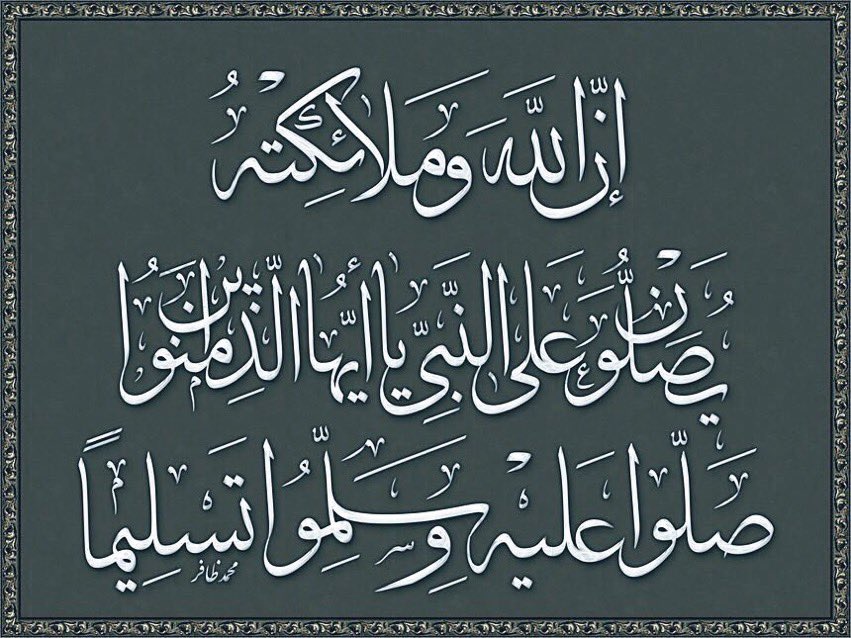 إنّ الله وملائكته
يُصَلُّونَ عَلَى النَّبِيِّ يَا أَيُّهَا الَّذِينَ آمَنُوا
صَلُّوا عَلَيْهِ وَسَلِّمُوا تَسْلِيمًا
محمد ظافر